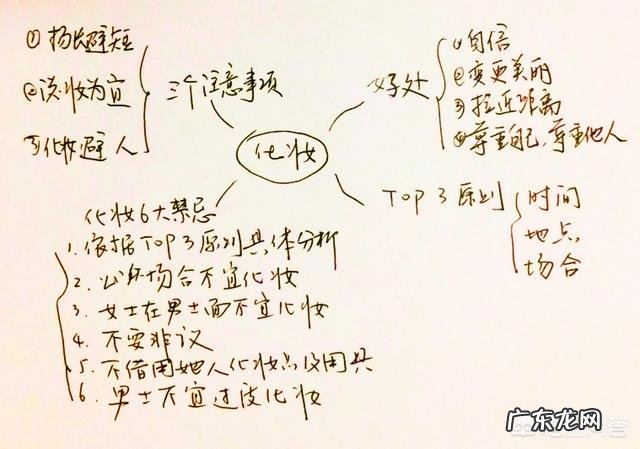 化妆
三个注意事项
①扬长避短
②淡妆为宜
③化妆避人
好处
①自信
②变更美丽
③拉近距离
④尊重自己,尊重他人
TOP 3 原则
时间
地点
场合
化妆6大禁忌
1. 依据TOP3原则具体分析
2. 公众场合不宜化妆
3. 女士在男士面不宜化妆
4. 不要非议
5. 不借用她人化妆品及用具
6. 男士不宜过度化妆
广东龙网